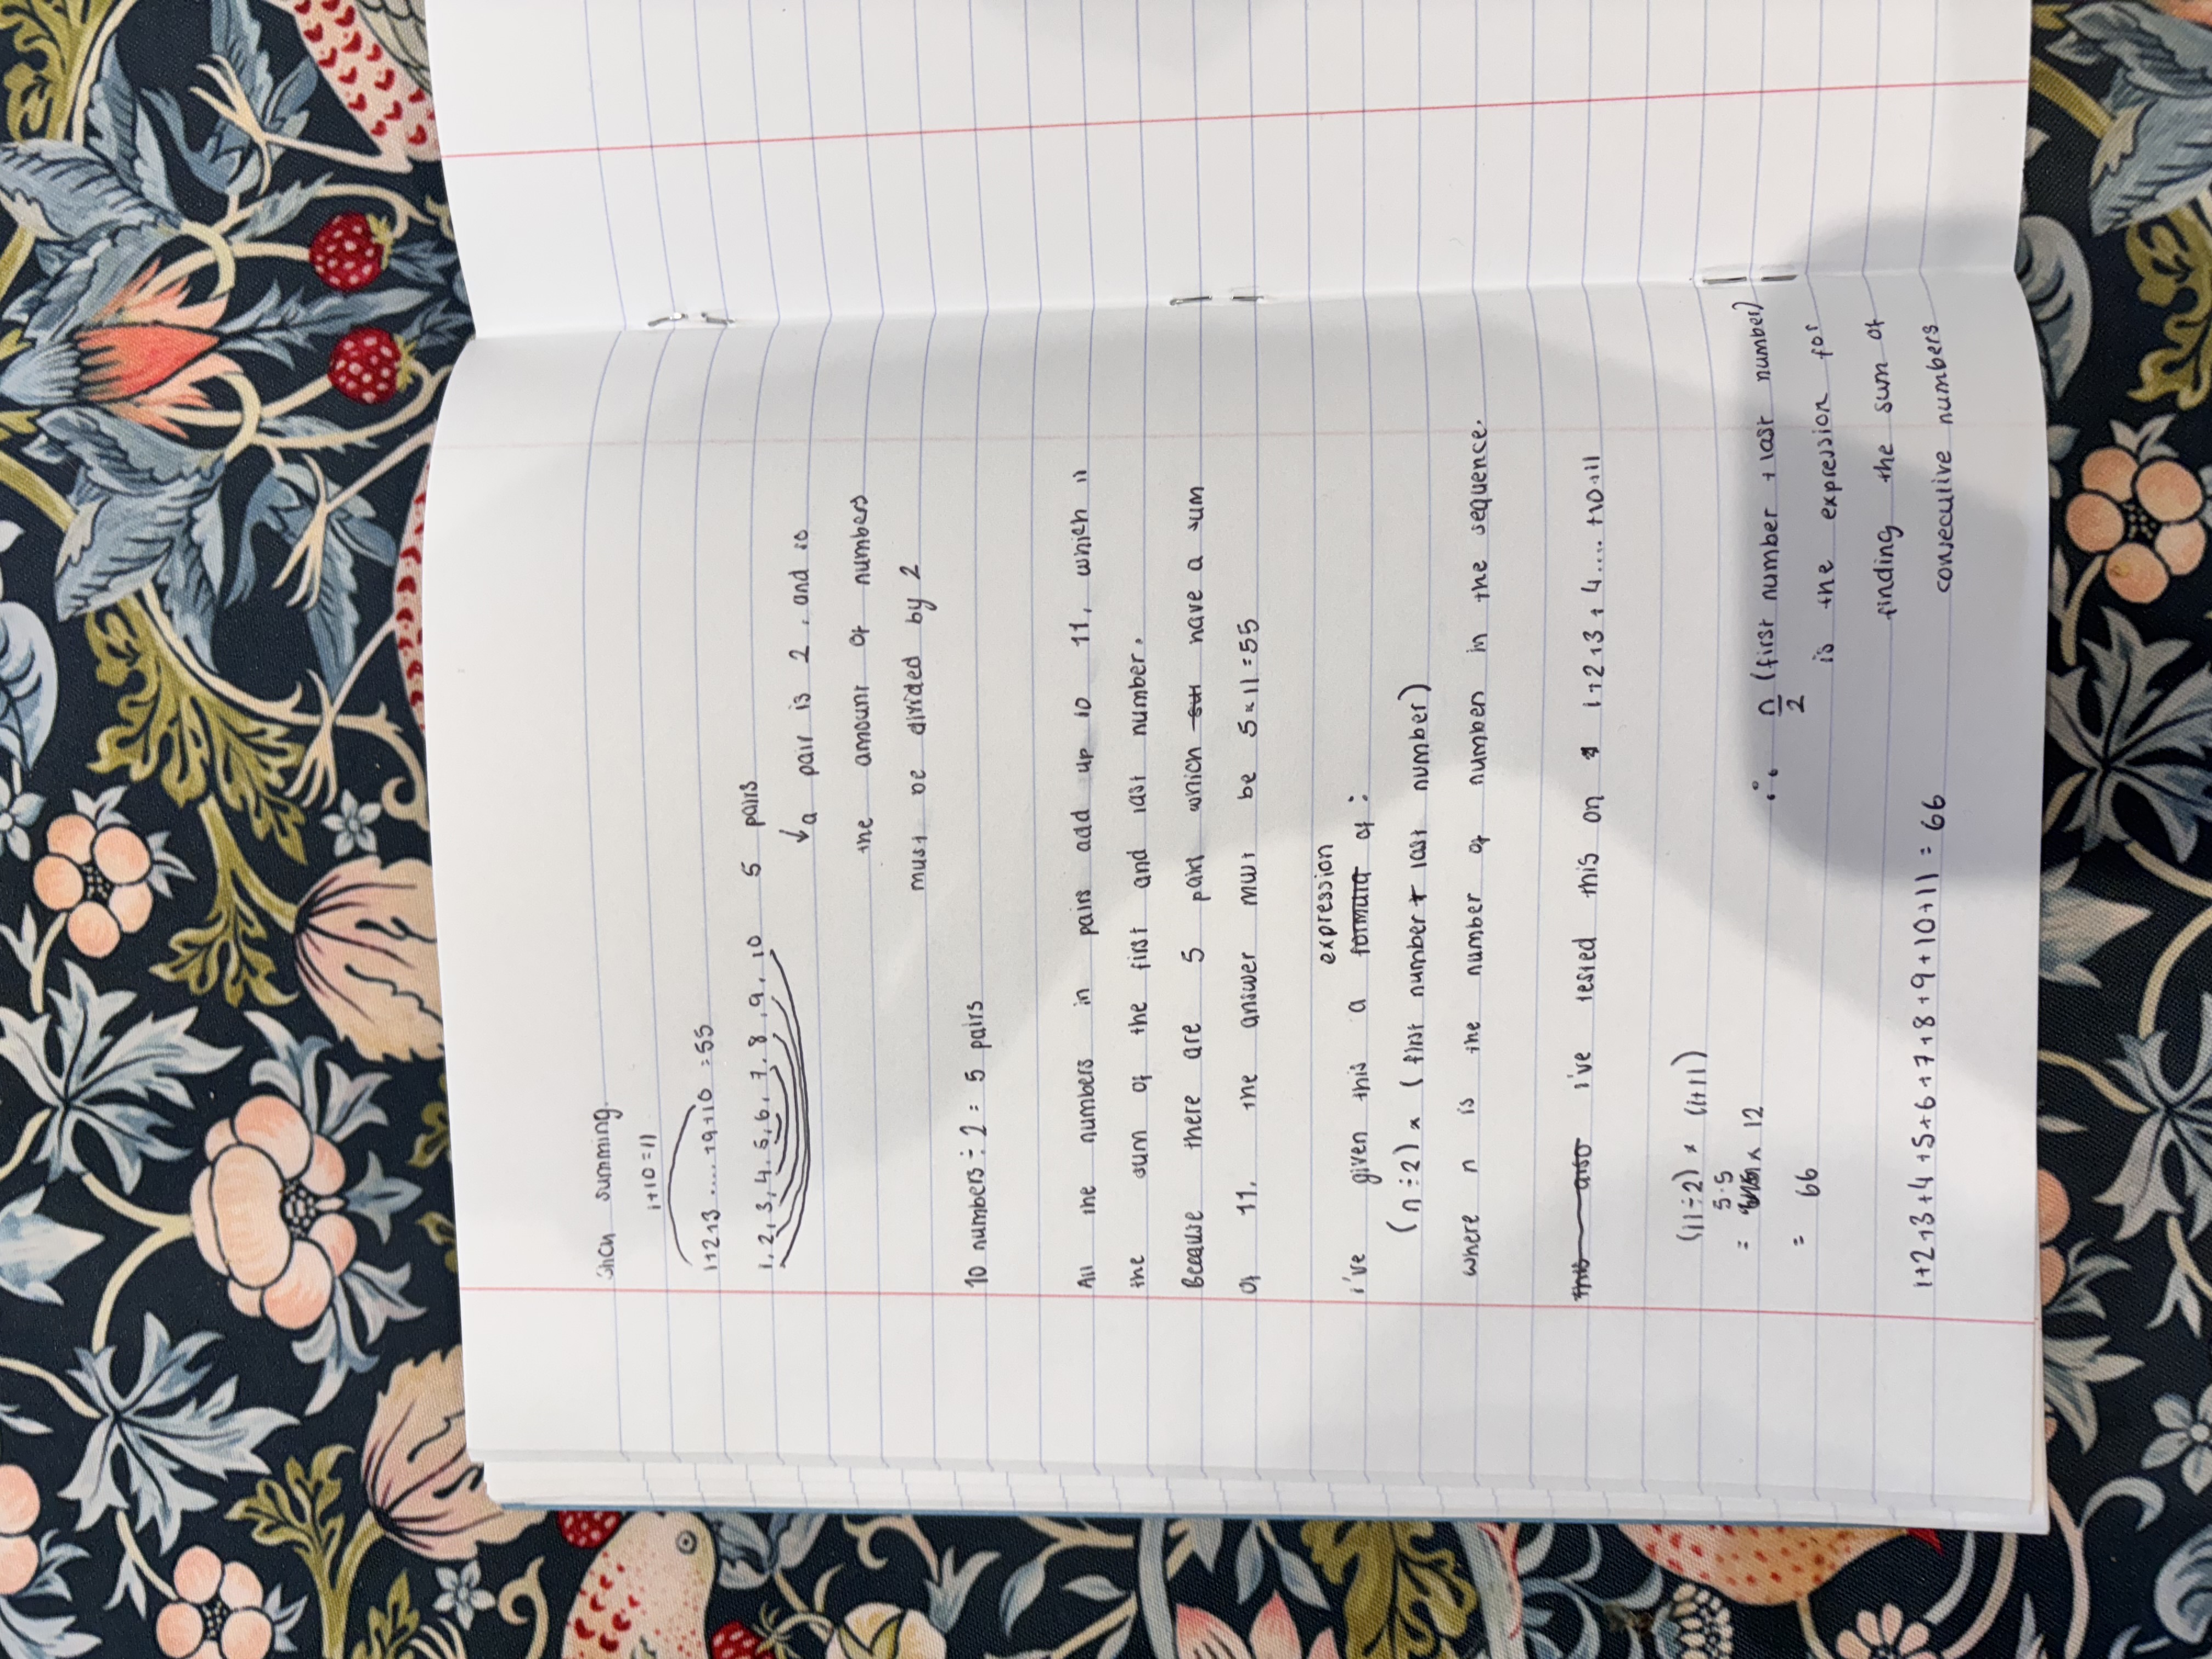 Slick summing.
1+10=11
1+2+3....+9+10 = 55
1, 2, 3, 4, 5, 6, 7, 8, 9, 10 5 pairs
↓a pair is 2, and so
the amount of numbers
must be divided by 2
10 numbers ÷ 2 = 5 pairs
All the numbers in pairs add up to 11, which is
the sum of the first and last number.
Because there are 5 pairs which have a sum
of 11. the answer must be 5 × 11 = 55
expression
i've given this a formula of:
(n÷2) × (first number + last number)
where n is the number of numbers in the sequence.
This also i've tested this on 1+2+3+4.... +10+11
(11÷2) × (1+11)
5.5
= × 12
= 66
∴ n/2 (first number + last number)
is the expression for
finding the sum of
consecutive numbers
1+2+3+4+5+6+7+8+9+10+11 = 66